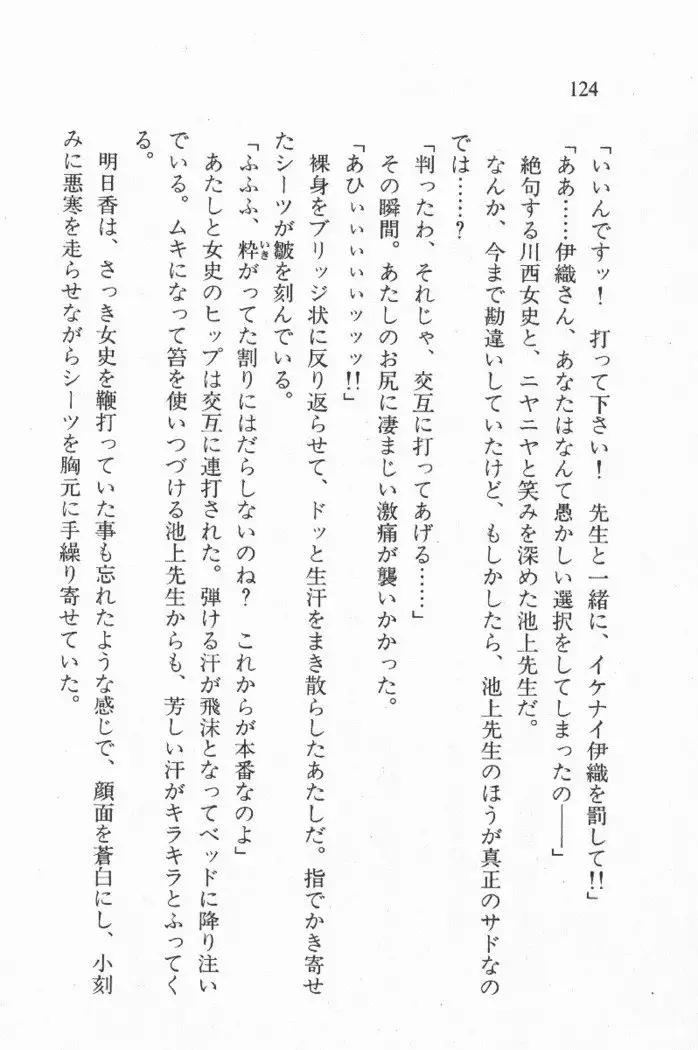 124
「いいんですッ！　打って下さい！　先生と一緒に、イケナイ伊織を罰して!!」
「ああ……伊織さん、あなたはなんて愚かしい選択をしてしまったの――」
絶句する川西女史と、ニヤニヤと笑みを深めた池上先生だ。
なんか、今まで勘違いしていたけど、もしかしたら、池上先生のほうが真正のサドなの
では……？
「判ったわ、それじゃ、交互に打ってあげる……」
その瞬間。あたしのお尻に凄まじい激痛が襲いかかった。
「あひぃぃぃぃぃッッッ!!」
裸身をブリッジ状に反り返らせて、ドッと生汗をまき散らしたあたしだ。指でかき寄せ
たシーツが皺を刻んでいる。
「ふふふ、粋いきがってた割りにはだらしないのね？　これからが本番なのよ」
あたしと女史のヒップは交互に連打された。弾ける汗が飛沫となってベッドに降り注い
でいる。ムキになって笞を使いつづける池上先生からも、芳しい汗がキラキラとふってく
る。
明日香は、さっき女史を鞭打っていた事も忘れたような感じで、顔面を蒼白にし、小刻
みに悪寒を走らせながらシーツを胸元に手繰り寄せていた。